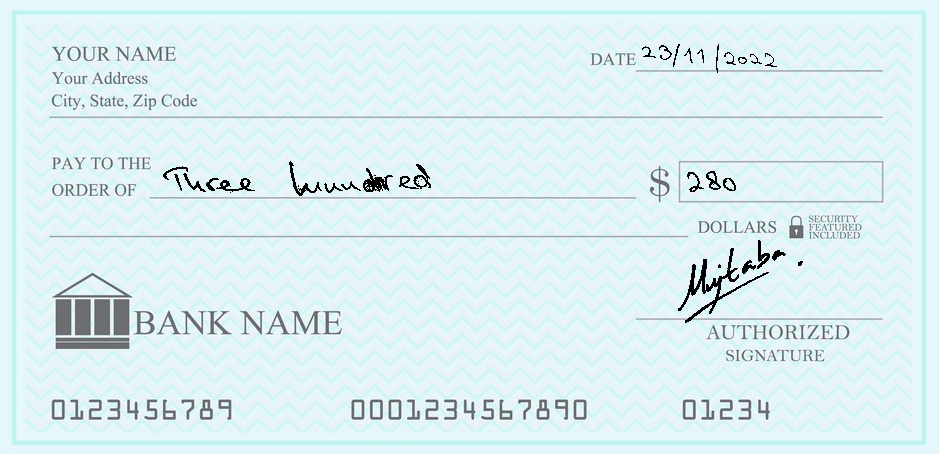 YOUR NAME
Your Address
City, State, Zip Code
DATE 23/11/2022
PAY TO THE
ORDER OF Three hundred $ 280
DOLLARS SECURITY FEATURED INCLUDED
Mujtaba.
BANK NAME
AUTHORIZED
SIGNATURE
0123456789 0001234567890 01234